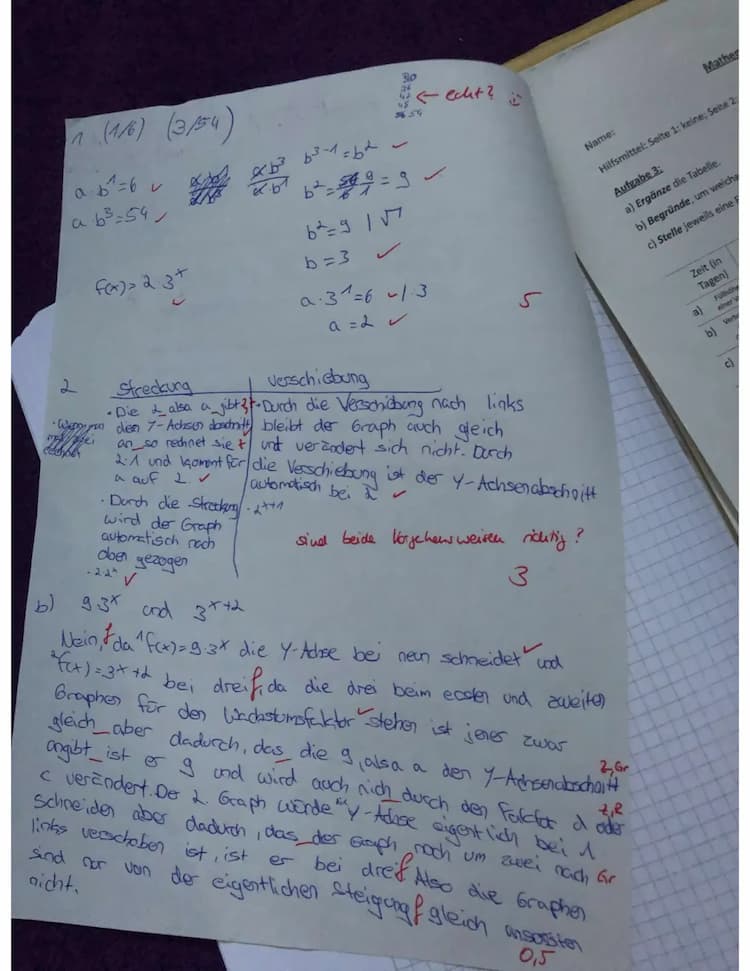 1 (1/6) (3/54)
← echt? :)
a·b¹=6 ✓
ab³=54 ✓
ab³/ab¹ b³⁻¹=b² ✓
b²=9/1=9 ✓
b²=9 |√
b=3 ✓
f(x)=2·3ˣ ✓
a·3¹=6 ✓ |:3
a=2 ✓
5
2 Streckung
· Die 2 also a gibt
den Y-Achsenabschnitt
an so rechnet sie
2·1 und kommt für
a auf 2 ✓
· Durch die Streckung
wird der Graph
automatisch nach
oben gezogen
· 2·2ˣ ✓
Verschiebung
· Durch die Verschiebung nach links
bleibt der Graph auch gleich
und verändert sich nicht. Durch
die Verschiebung ist der Y-Achsenabschnitt
automatisch bei 2 ✓
· 2ˣ⁺¹
sind beide Vorgehensweisen richtig?
3
b) 9·3ˣ und 3ˣ⁺²
Nein, f da ¹f(x)=9·3ˣ die Y-Achse bei neun schneidet ✓ und
²f(x)=3ˣ+2 bei drei f, da die drei beim ersten und zweiten
Graphen für den Wachstumsfaktor ✓ stehen ist jener zwar
gleich aber dadurch, das die 9, also a den Y-Achsenabschnitt Z, Gr
angibt ist er 9 und wird auch nich durch den Faktor d oder Z, R
c verändert. Der 2. Graph würde Y-Achse eigentlich bei 1
schneiden aber dadurch, das der Graph noch um zwei nach Gr
links verschoben ist, ist er bei drei f Also die Graphen
sind nur von der eigentlichen Steigung f gleich ansonsten
nicht.
0,5
Mathe
Name:
Hilfsmittel: Seite 1: keine; Seite 2:
Aufgabe 3:
a) Ergänze die Tabelle.
b) Begründe, um welch
c) Stelle jeweils eine F
Zeit (in
Tagen)
a)
b)
c)